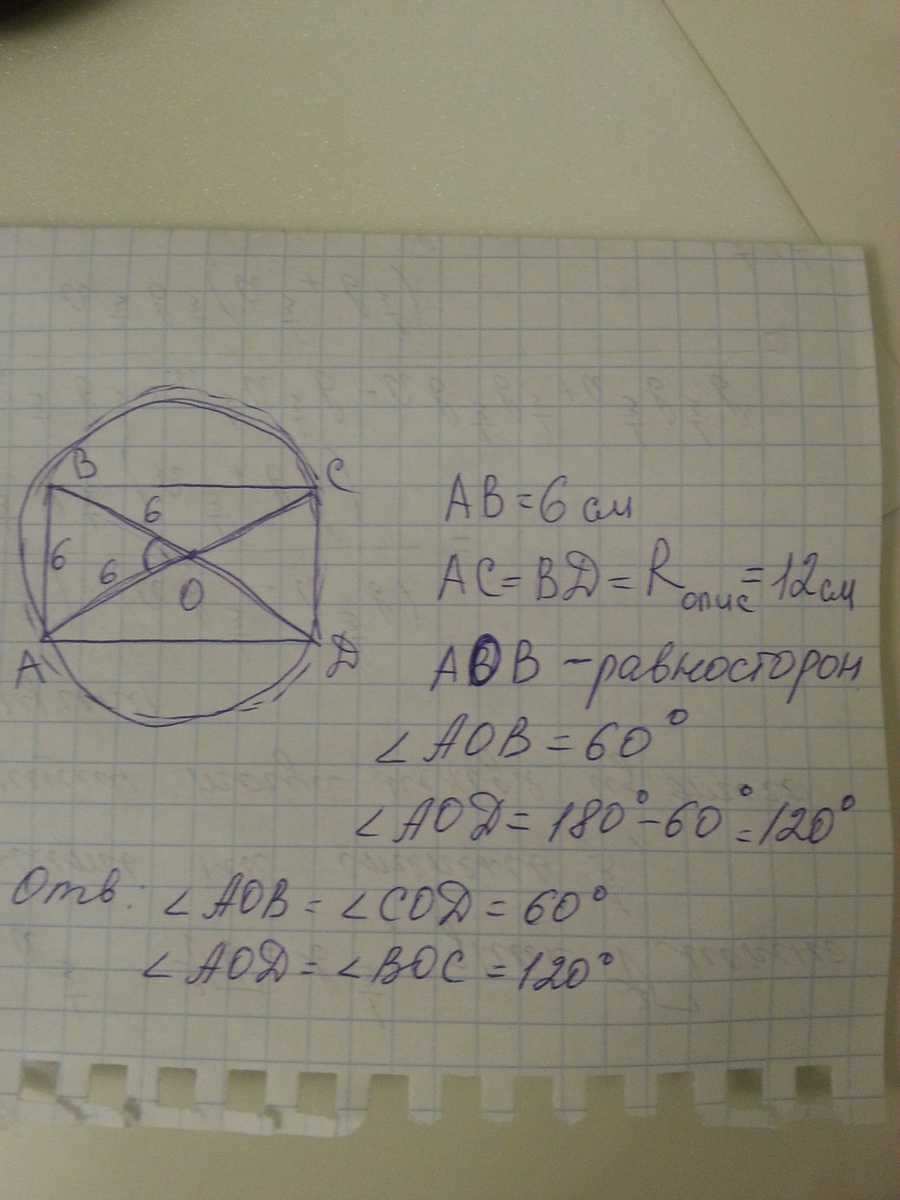 B
C
6
6
6
O
A
D
AB = 6 см
AC = BD = Rопис = 12 см
AOB – равносторон
∠ AOB = 60°
∠ AOD = 180° - 60° = 120°
Отв: ∠ AOB = ∠ COD = 60°
∠ AOD = ∠ BOC = 120°